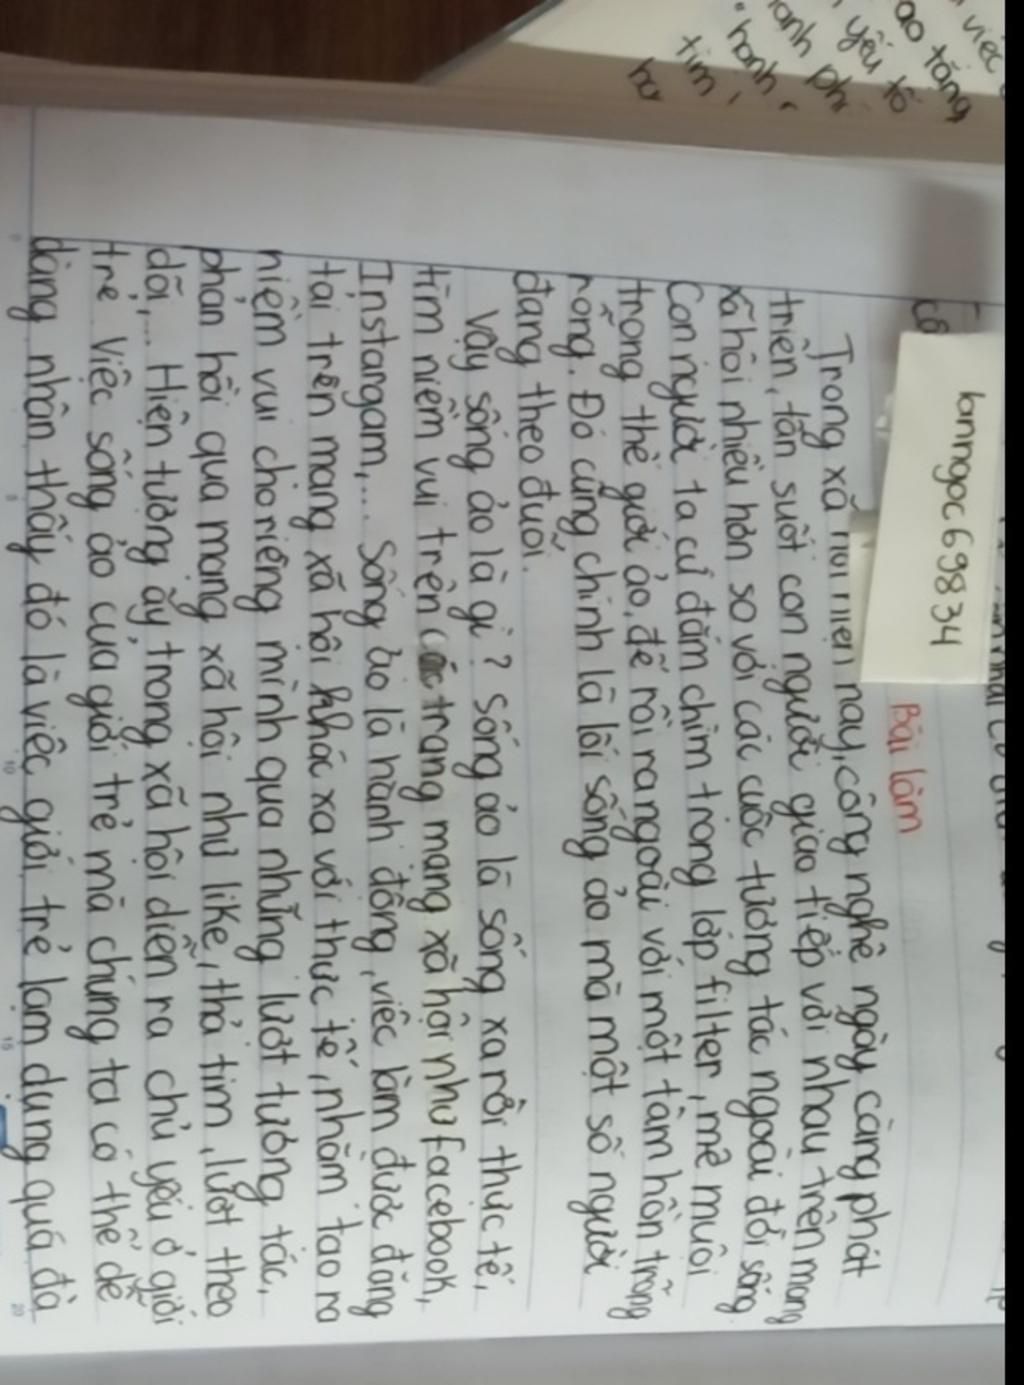 việc
ao tăng
yếu tố
anh ph
"hành
tim,
lanngoc698834
Bài làm
Trong xã hội hiện nay, công nghệ ngày càng phát
triển, tần suốt con người giao tiếp với nhau trên mạng
xã hội nhiều hơn so với các cuộc tương tác ngoài đời sống.
Con người ta cứ đắm chìm trong lớp filter, mê muội
trong thế giới ảo, để rồi ra ngoài với một tâm hồn trống
rỗng. Đó cũng chính là lối sống ảo mà một số người
đang theo đuổi.
Vậy sống ảo là gì? Sống ảo là sống xa rời thực tế,
tìm niềm vui trên các trang mạng xã hội như facebook,
Instargam,... Sống ảo là hành động, việc làm được đăng
tải trên mạng xã hội khác xa với thực tế, nhằm tạo ra
niềm vui cho riêng mình qua những lượt tương tác,
phản hồi qua mạng xã hội như like, thả tim, lượt theo
dõi,... Hiện tượng ấy trong xã hội diễn ra chủ yếu ở giới
trẻ. Việc sống ảo của giới trẻ mà chúng ta có thể dễ
dàng nhận thấy đó là việc giới trẻ lạm dụng quá đà